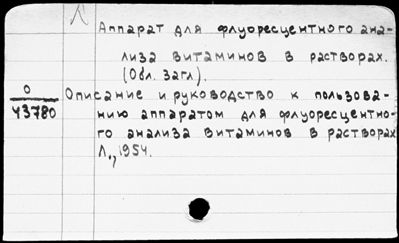 Л
Аппарат для флуоресцентного ана-
лиза витаминов в растворах.
(Обл. загл).
О
43780
Описание и руководство к пользова-
нию аппаратом для флуоресцентно-
го анализа витаминов в растворах
Л., 1954.